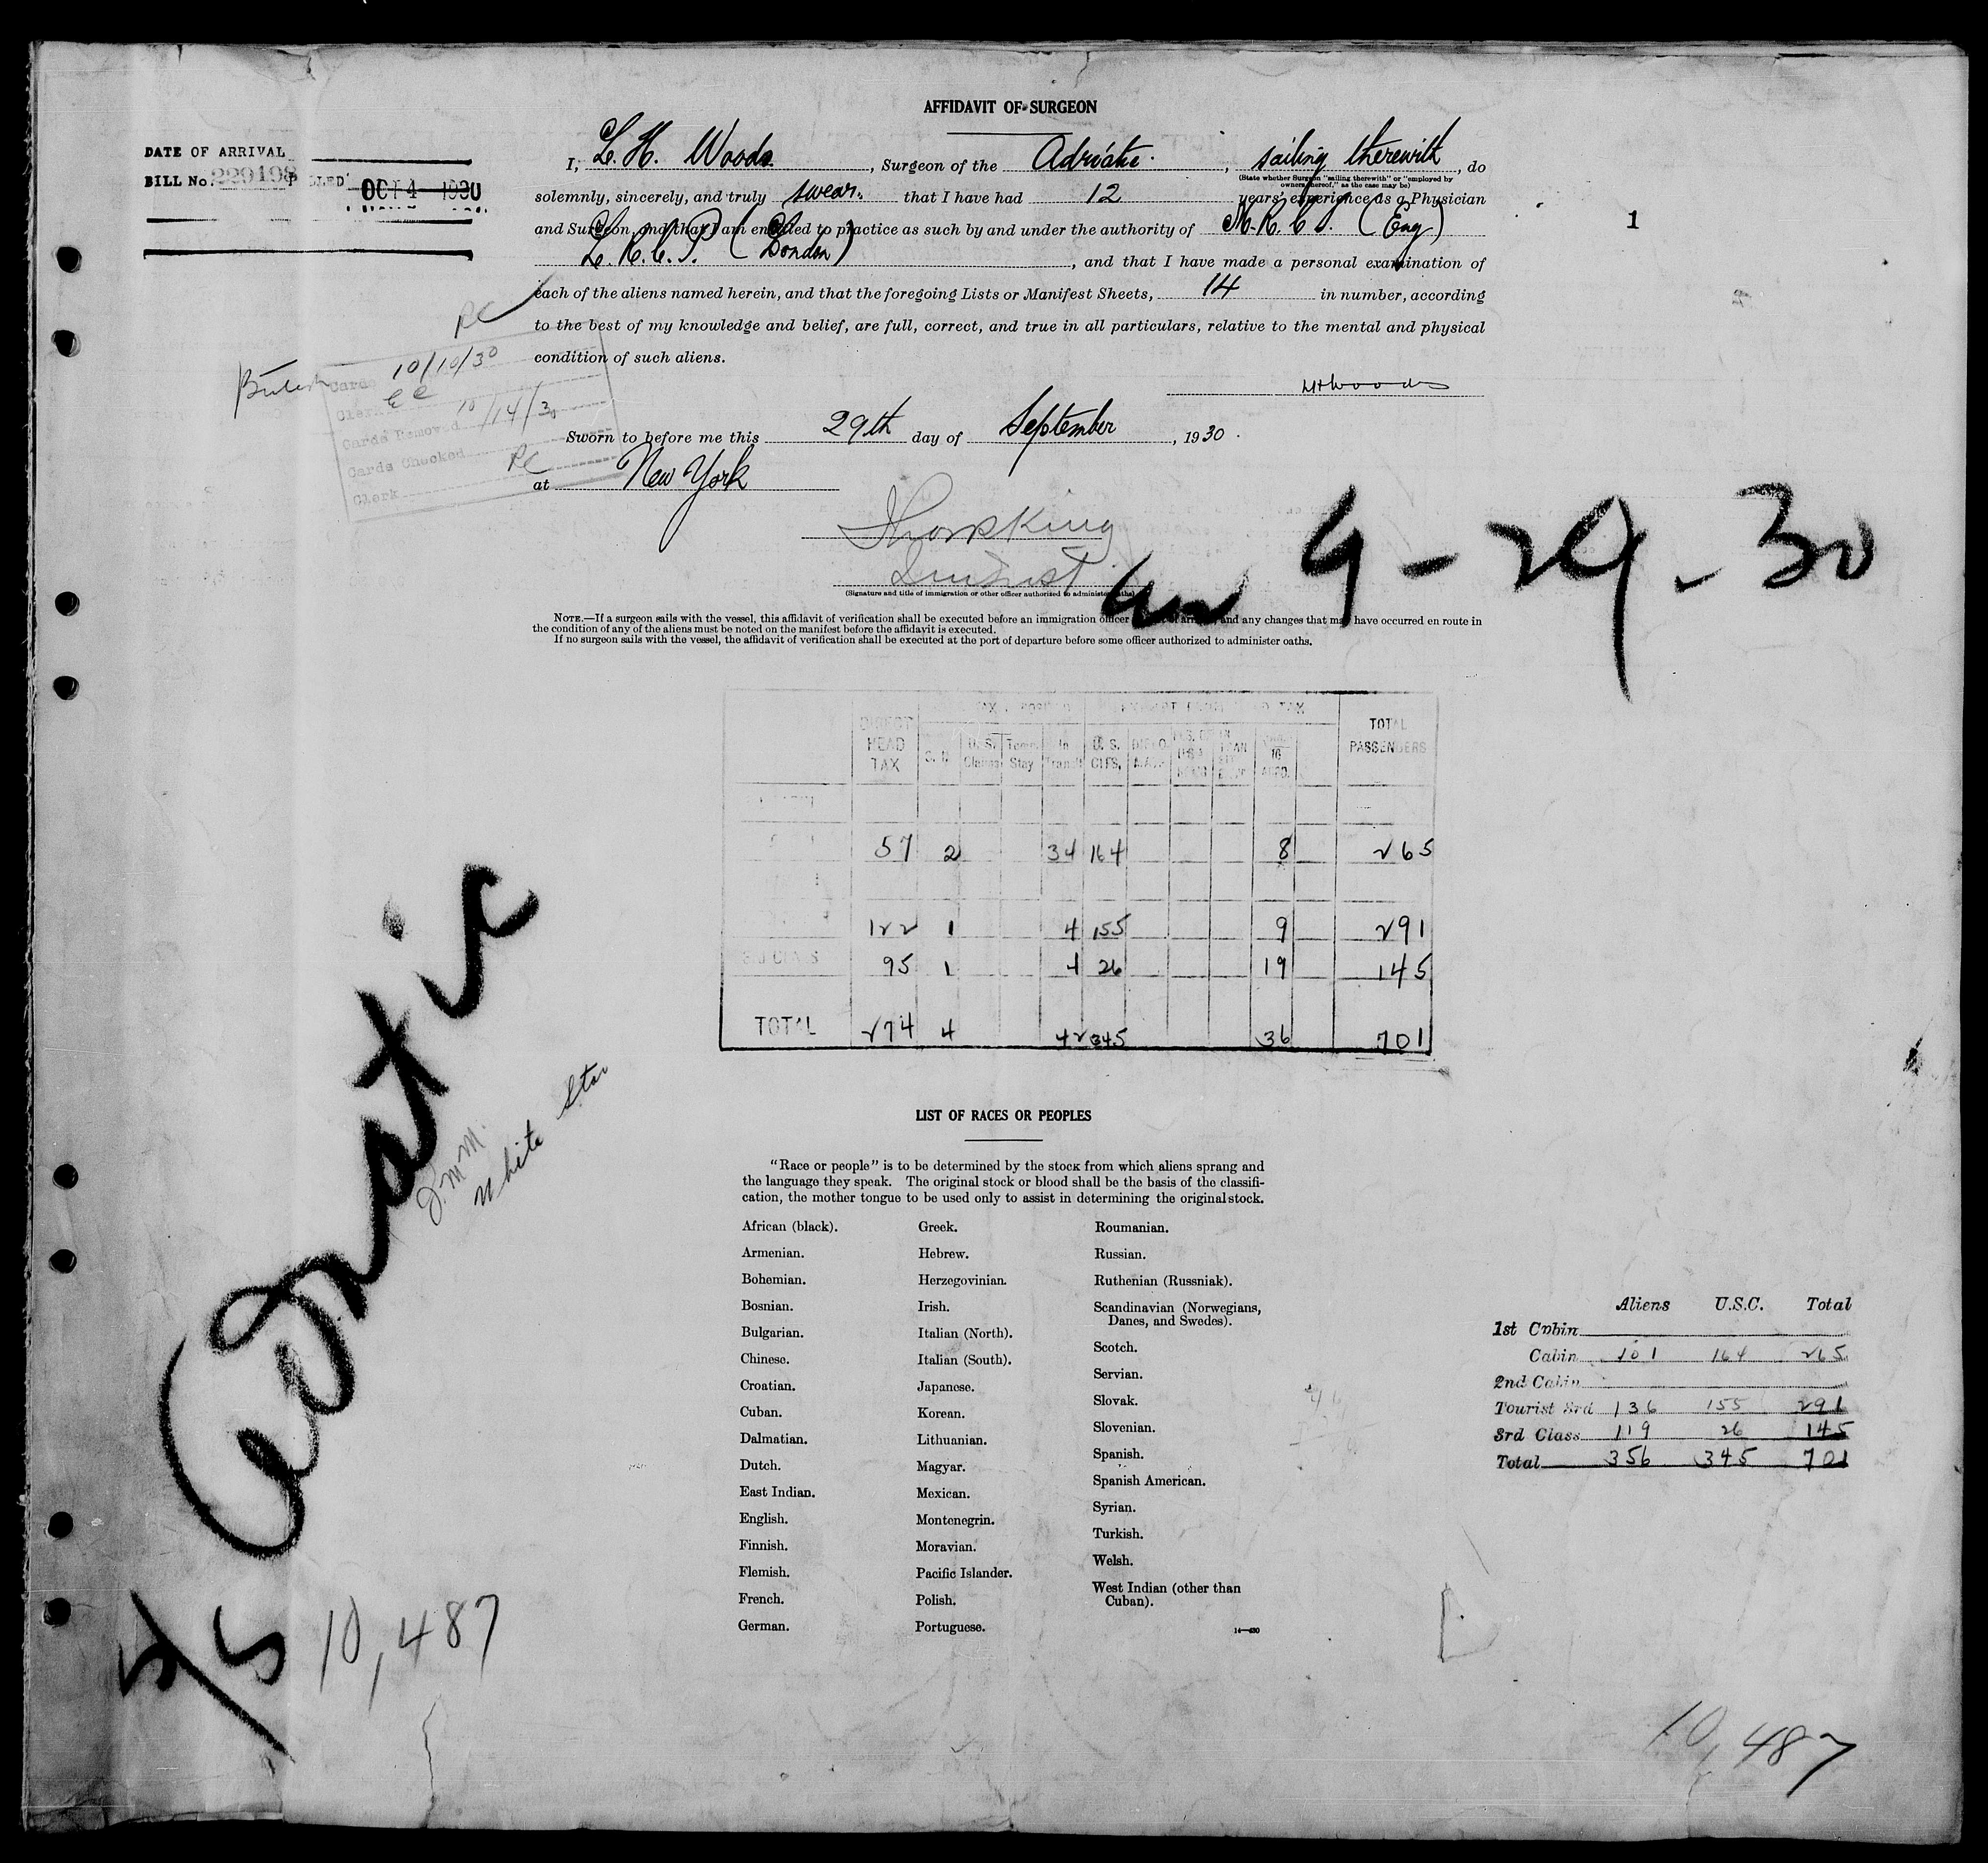 AFFIDAVIT OF SURGEON
DATE OF ARRIVAL
BILL No.
OCT 4 1930
I, L. H. Woods, Surgeon of the Adriatic, sailing therewith, do
(State whether Surgeon "sailing therewith" or "employed by
owners thereof," as the case may be)
solemnly, sincerely, and truly swear that I have had 12 years' experience as a Physician
and Surgeon, and that I am entitled to practice as such by and under the authority of M.R.C.S. (Eng)
L.R.C.P. (London), and that I have made a personal examination of
each of the aliens named herein, and that the foregoing Lists or Manifest Sheets, 14 in number, according
to the best of my knowledge and belief, are full, correct, and true in all particulars, relative to the mental and physical
condition of such aliens.
1
LHWoods
British
10/10/30
Clerk
Cards Removed 10/14/30
Cards Checked
Clerk
Sworn to before me this 29th day of September, 1930.
at New York
(Signature and title of immigration or other officer authorized to administer oaths)
9-29-30
NOTE.—If a surgeon sails with the vessel, this affidavit of verification shall be executed before an immigration officer and any changes that may have occurred en route in
the condition of any of the aliens must be noted on the manifest before the affidavit is executed.
If no surgeon sails with the vessel, the affidavit of verification shall be executed at the port of departure before some officer authorized to administer oaths.
DIRECT HEAD TAX
U.S. Claims
Temp. Stay
In Transit
U.S. CITS.
TOTAL PASSENGERS
57 2 34 164 8 265
122 1 4 155 9 291
3rd CLASS 95 1 4 26 19 145
TOTAL 274 4 42 345 36 701
S/S Adriatic
J.M.M.
White Star
10,487
LIST OF RACES OR PEOPLES
"Race or people" is to be determined by the stock from which aliens sprang and
the language they speak. The original stock or blood shall be the basis of the classifi-
cation, the mother tongue to be used only to assist in determining the original stock.
African (black).
Armenian.
Bohemian.
Bosnian.
Bulgarian.
Chinese.
Croatian.
Cuban.
Dalmatian.
Dutch.
East Indian.
English.
Finnish.
Flemish.
French.
German.
Greek.
Hebrew.
Herzegovinian.
Irish.
Italian (North).
Italian (South).
Japanese.
Korean.
Lithuanian.
Magyar.
Mexican.
Montenegrin.
Moravian.
Pacific Islander.
Polish.
Portuguese.
Roumanian.
Russian.
Ruthenian (Russniak).
Scandinavian (Norwegians,
Danes, and Swedes).
Scotch.
Servian.
Slovak.
Slovenian.
Spanish.
Spanish American.
Syrian.
Turkish.
Welsh.
West Indian (other than
Cuban).
14—430
Aliens U.S.C. Total
1st Cabin
Cabin 101 164 265
2nd Cabin
Tourist 3rd 136 155 291
3rd Class 119 26 145
Total 356 345 701
10,487